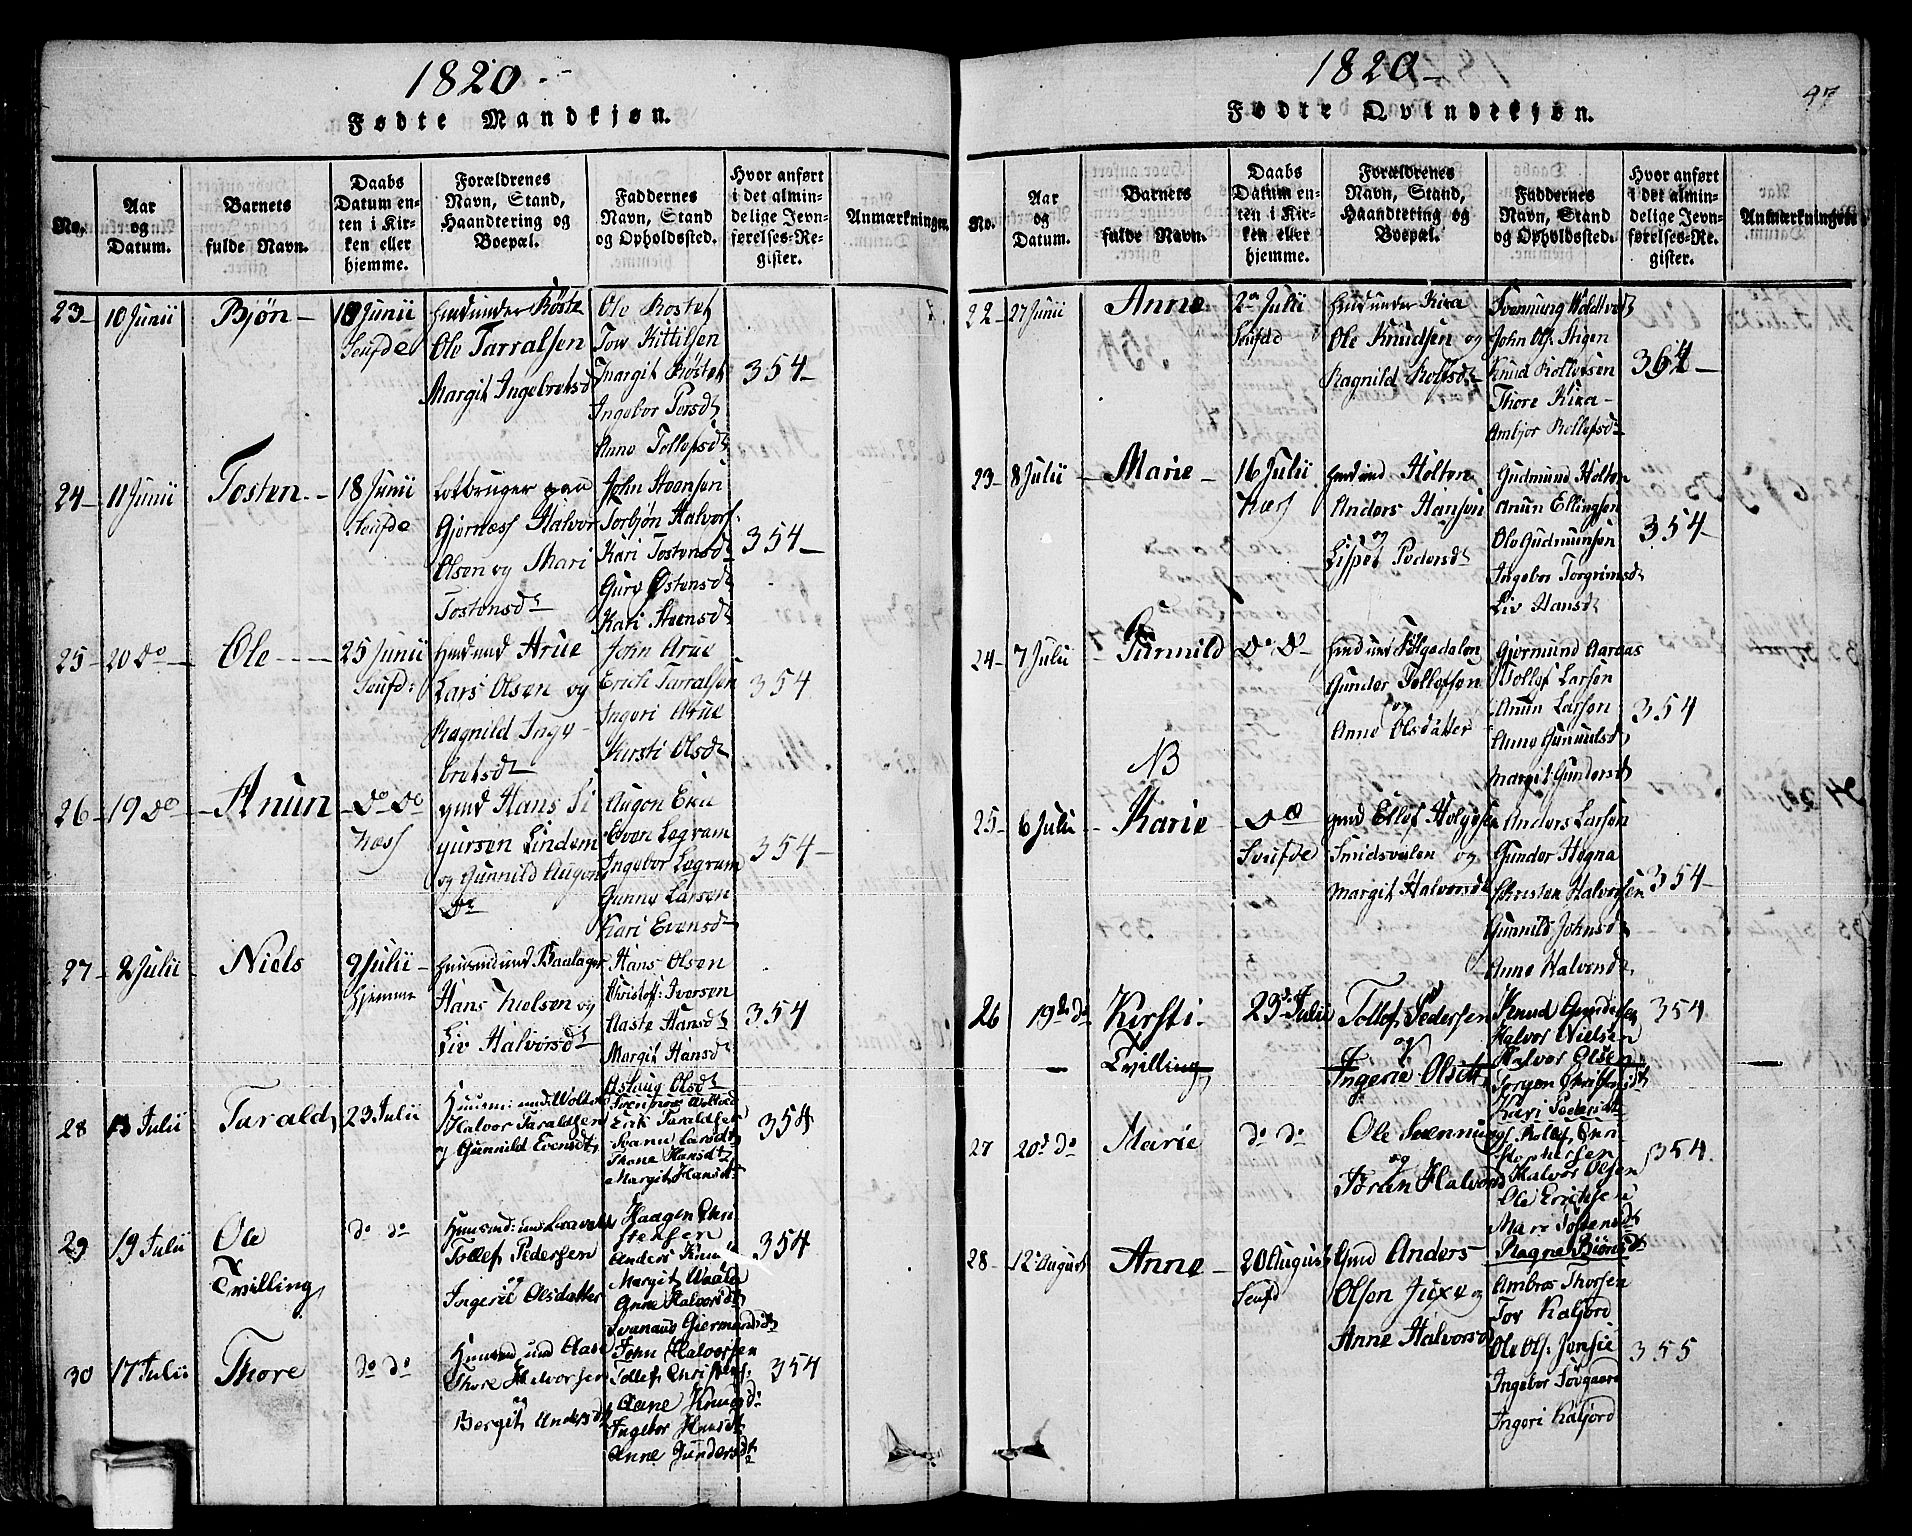 1820.
Fødte Mandkjøn.
No.
Aar og Datum.
Barnets fulde Navn.
Daabs Datum enten i Kirken eller hjemme.
Forældrenes Navn, Stand, Haandtering og Boepæl.
Faddernes Navn, Stand og Opholdssted.
Hvor anført i det almindelige Jevnførelses-Register.
Anmærkninger.
23
10 Junii
Bjøn
18 Junii
Seufde
Huusd under Røste
Ole Tarralsen
Margit Ingebretsd
Ole Rostet
Tow Kittilsen
Margit Røstet
Ingebor Persdt
Anne Tollefsdt
354
24
11 Junii
Tosten
18 Junii
Seufde
Lotbruger paa
Gjernæss Halvor
Olsen og Mari
Tostensdt
John Steensen
Torbjøn Halvors.
Kari Tostensdt
Gury Ostensdt
Kari Steensdt
354
25
20 do
Ole
25 Junii
Seufd:
Hmd und Arue
Lars Olsen og
Ragnild Inge-
bretsdt
John Arue
Erich Tarralsen
Ingeri Arue
Kirsti Olsdt
354
26
19 do
Anun
do do
Næss
gmd Hans Si
gursen Lindem
og Gunnild Augon
dt
Augon Eku
Even Legram
Ingebor Legram
Gunne Larsen
Kari Evensdt
354
27
2 Julii
Niels
9 Julii
Hjemme
Huusmd und Baulager
Hans Nielsen og
Liv Halvorsdt
Hans Olsen
Christof: Iversen
Aaste Hansdt
Margit Hansdt
Aslaug Olsdt
354
28
13 Julii
Tarald
23 Julii
Huusm: und: Wolds
Halvor Taraldsen
og Gunnild Evensdt
Erik Taraldsen
Svanu Larsdt
Thone Hansdt
Margit Hansdt
354
29
19 Julii
Ole
Tvilling
do do
Tollef Pedersen
og
Ingerie Olsdatter
Haagen Chri
stensen
Anders Knu
Margit Waala
Anne Halvorsdt
354
30
17 Julii
Thore
do do
Huusmd und Aase
Thore Halvorsen
og
Bergit Andersdt
Svanaug Giermundsdt
John Halvorsen
Tollef Christens:
Aane Knudsd:
Ingebor Knusdt
Anne Gundersdt
354
1820
97
Fødte Qvindekjøn.
No.
Aar og Datum.
Barnets fulde Navn.
Daabs Datum enten i Kirken eller hjemme.
Forældrenes Navn, Stand, Haandtering og Boepæl.
Faddernes Navn, Stand og Opholdssted.
Hvor anført i det almindelige Jevnførelses-Register.
Anmærkninger
22
27 Junii
Anne
2 Julii
Seufde
Huusd under Kixa
Ole Knudsen og
Ragnild Rolfsdt
Svennung Woldtvedt
John Ols. Stigen
Knud Rollefsen
Thore Kixa
Ambjor Rollefsdt
364
23
8 Julii
Marie
16 Julii
Næss
Huusd und Holten
Anders Hansen
og
Lispet Pedersdt
Gudmund Holten
Anun Ellingsen
Ole Gudmunsen
Ingebor Torgrimsdt
Liv Hansdt
354
24
7 Julii
Gunnild
do do
Gunder Tollefsen
og
Anne Olsdatter
Gjermund Aaraas
Tollef Larsen
Anun Larsen
Anne Gunuulsdt
Margit Gundersdt
354
NB
25
6 Julii
Karie
do
Seufde
gmd Ellef Holgesen
Smidsvalen og
Margit Halvorsdt
Anders Larsen
Gunder Hegna
Christen Halvorsen
Gunnild Johnsdt
Anne Halvorsdt
354
26
19de do
Kirsti
Tvilling
23de Julii
Tollef Pedersen
og
Ingerie Olsdtt
Knud Gundersen
Halvor Nielsen
Halvor Olsen
Kari Pedersdt
354
27
20d do
Marie
do do
Ole Svennung
og
Jøran Halvorsd
Halvor Olsen
Ole Erichsen
Mari Tostensdt
Ragne Biønsdt
354.
28
12 August
Anne
20 August
Seufd
Gmd Anders
Olsen Juxe og
Anne Halvorsd
Ambros Thorsen
Tor Kaljord
Ole Ols: Jønsie
Ingebor Tovgaard
Ingeri Kaljord
355